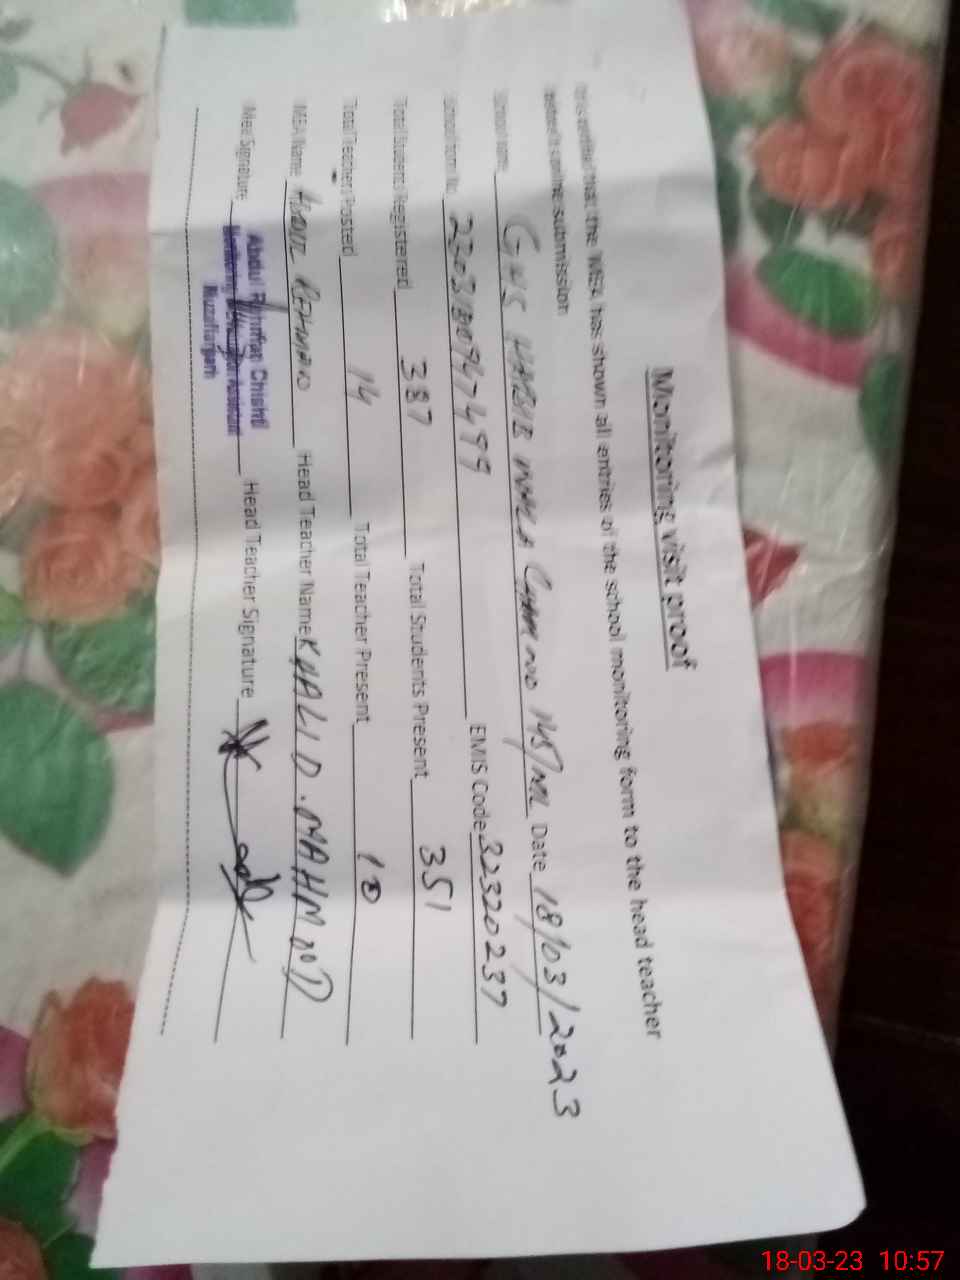 Monitoring visit proof
that the MEA has shown all entries of the school monitoring form to the head teacher
before submission
School name GHS HABIB WALA Date 18/03/2023
School form No EMIS Code 32320237
Total Student Registered 387 Total Students Present 351
Total Teacher Posted 14 Total Teacher Present 10
MEA Name ABDUL REHMAN Head Teacher Name KHALID.MAHMOOD
Mea Signature Head Teacher Signature
Abdul Chishti
Monitoring Assistant
Muzaffargarh
18-03-23 10:57